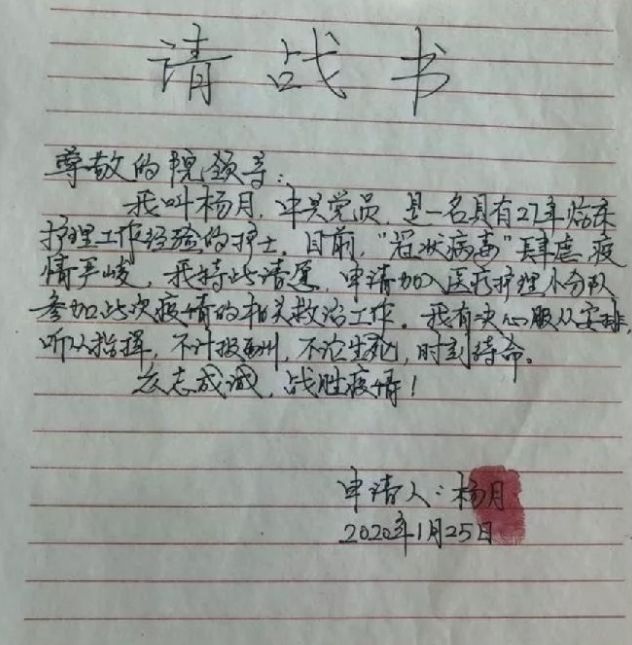 请战书
尊敬的院领导:
我叫杨月,中共党员,是一名具有27年临床
护理工作经验的护士。目前,"冠状病毒"肆虐,疫
情严峻,我特此请愿,申请加入医疗护理小分队
参加此次疫情的相关救治工作。我有决心服从安排,
听从指挥,不计报酬,不论生死,时刻待命。
众志成诚,战胜疫情!
申请人:杨月
2020年1月25日